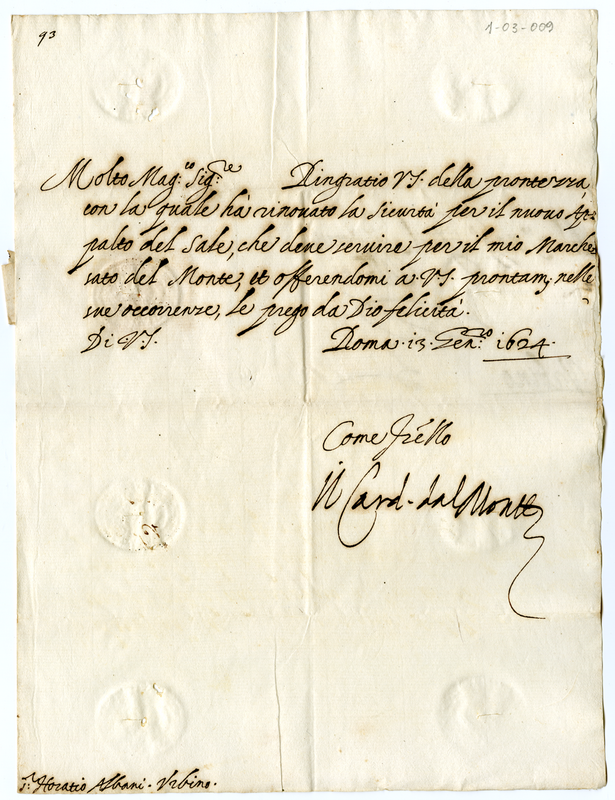 93
1-03-009
Molto Mag:co Sig:re Ringratio V.S. della prontezza,
con la quale hà rinovato la sicurtà per il nuovo Ap=
palto del Sale, che deve servire per il mio Marche
sato del Monte, et offerendomi a V.S. prontam; nelle
sue occorrenze, le prego da Dio felicità.
Di V.S. Roma 13. Gen:ro 1624.
Come fr̃ello
il Card. dal Monte
S:r Horatio Albani. Urbino.